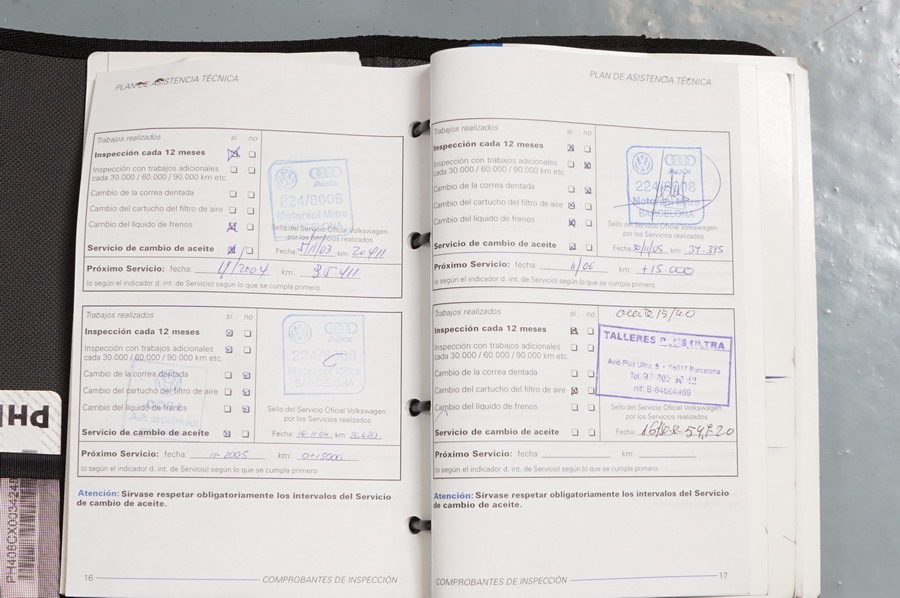 PLAN DE ASISTENCIA TÉCNICA
Trabajos realizados sí no
Inspección cada 12 meses
Inspección con trabajos adicionales
cada 30.000 / 60.000 / 90.000 km etc.
Cambio de la correa dentada
Cambio del cartucho del filtro de aire
Cambio del líquido de frenos
Servicio de cambio de aceite
Audi
224/8008
Motorsol Mitre
Sello del Servicio Oficial Volkswagen
por los Servicios realizados
Fecha: 5/11/03 km: 20411
Próximo Servicio: fecha: 11/2004 km: 35411
(o según el indicador d. int. de Servicio) según lo que se cumpla primero
Trabajos realizados sí no
Inspección cada 12 meses
Inspección con trabajos adicionales
cada 30.000 / 60.000 / 90.000 km etc.
Cambio de la correa dentada
Cambio del cartucho del filtro de aire
Cambio del líquido de frenos
Servicio de cambio de aceite
Audi
224/8008
Motorsol Mitre
BARCELONA
Sello del Servicio Oficial Volkswagen
por los Servicios realizados
Fecha: 16-11-04 km:
Próximo Servicio: fecha 11-2005 km: 0+15000
(o según el indicador d. int. de Servicio) según lo que se cumpla primero
Atención: Sírvase respetar obligatoriamente los intervalos del Servicio
de cambio de aceite.
16 COMPROBANTES DE INSPECCIÓN
PLAN DE ASISTENCIA TÉCNICA
Trabajos realizados sí no
Inspección cada 12 meses
Inspección con trabajos adicionales
cada 30.000 / 60.000 / 90.000 km etc.
Cambio de la correa dentada
Cambio del cartucho del filtro de aire
Cambio del líquido de frenos
Servicio de cambio de aceite
Audi
224/8008
Motorsol Mitre
BARCELONA
Sello del Servicio Oficial Volkswagen
por los Servicios realizados
Fecha 30/11/05 km: 37.395
Próximo Servicio: fecha: 11/06 km: +15.000
(o según el indicador d. int. de Servicio) según lo que se cumpla primero
Trabajos realizados sí no
aceite 15/40
Inspección cada 12 meses
Inspección con trabajos adicionales
cada 30.000 / 60.000 / 90.000 km etc.
Cambio de la correa dentada
Cambio del cartucho del filtro de aire
Cambio del líquido de frenos
Servicio de cambio de aceite
TALLERES PLUS ULTRA
Avió Plus Ultra, Barcelona
Tel.
nif: B-
Sello del Servicio Oficial Volkswagen
por los Servicios realizados
Fecha km:
Próximo Servicio: fecha km:
(o según el indicador d. int. de Servicio) según lo que se cumpla primero
Atención: Sírvase respetar obligatoriamente los intervalos del Servicio
de cambio de aceite.
COMPROBANTES DE INSPECCIÓN 17
PHI